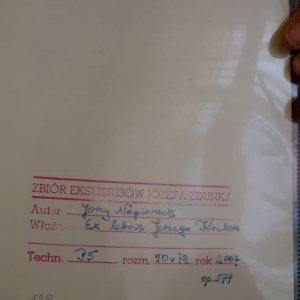 ZBIÓR EKSLIBRISÓW JÓZEFA ZDUNKA
Autor Jerzy Napieracz
Właściciel Ex libris Jerzego
Techn. P5 rozm. 90x78 rok 2007
op. 574
128